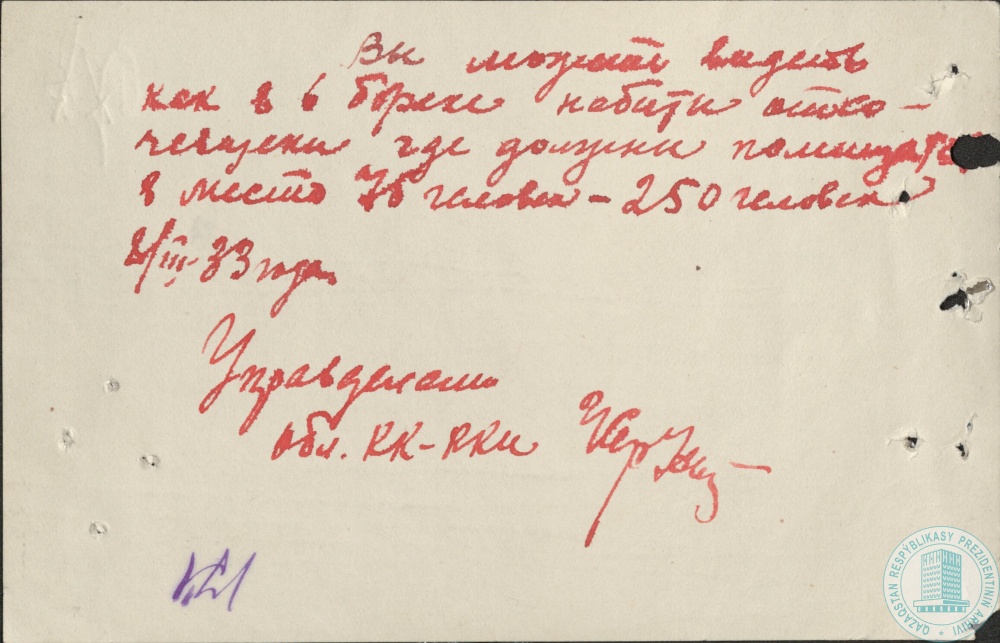 Вы можете видеть
как в 6 бараке набиты отко-
чевщеки где должны помища
в место 75 человек – 250 человек
2/III-33 года.
Управделами
обл. КК-РКИ
QAZAQSTAN RESPÝBLIKASY PREZIDENTINIŃ ARHIVI